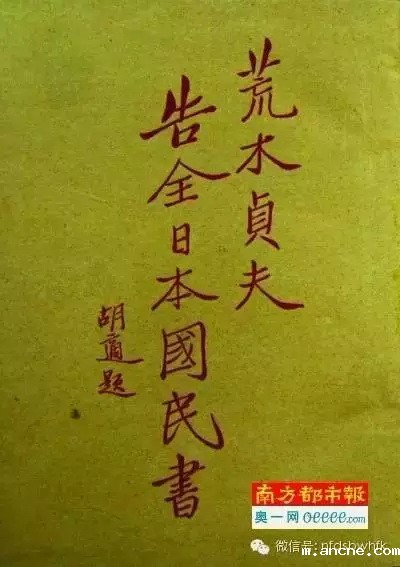 荒木貞夫
告全日本國民書
胡適題
南方都市報
奥一网 oeeee.com
微信号: nfdsbwhfk
m.ancne.com